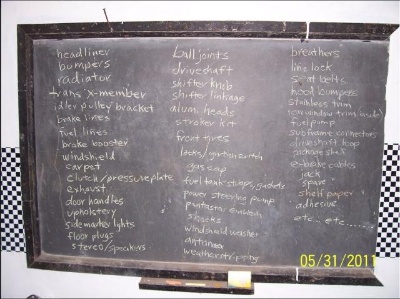 headliner
bumpers
radiator
trans x-member
idler pulley bracket
brake lines
fuel lines
brake booster
windshield
carpet
clutch/pressure plate
exhaust
door handles
upholstery
sidemarker lights
floor plugs
stereo/speakers
Ball joints
driveshaft
shifter knob
shifter linkage
alum. heads
stroker kit
front tires
locks/ignition switch
gas cap
fuel tank straps, gaskets
power steering pump
emblem
shocks
windshield washer
antenna
weatherstripping
breathers
line lock
seat belts
hood bumpers
stainless trim
(window trim inside)
fuel pump
subframe connectors
driveshaft loop
package shelf
e-brake cables
jack
spare
shelf paper
adhesive
etc... etc......
05/31/2011